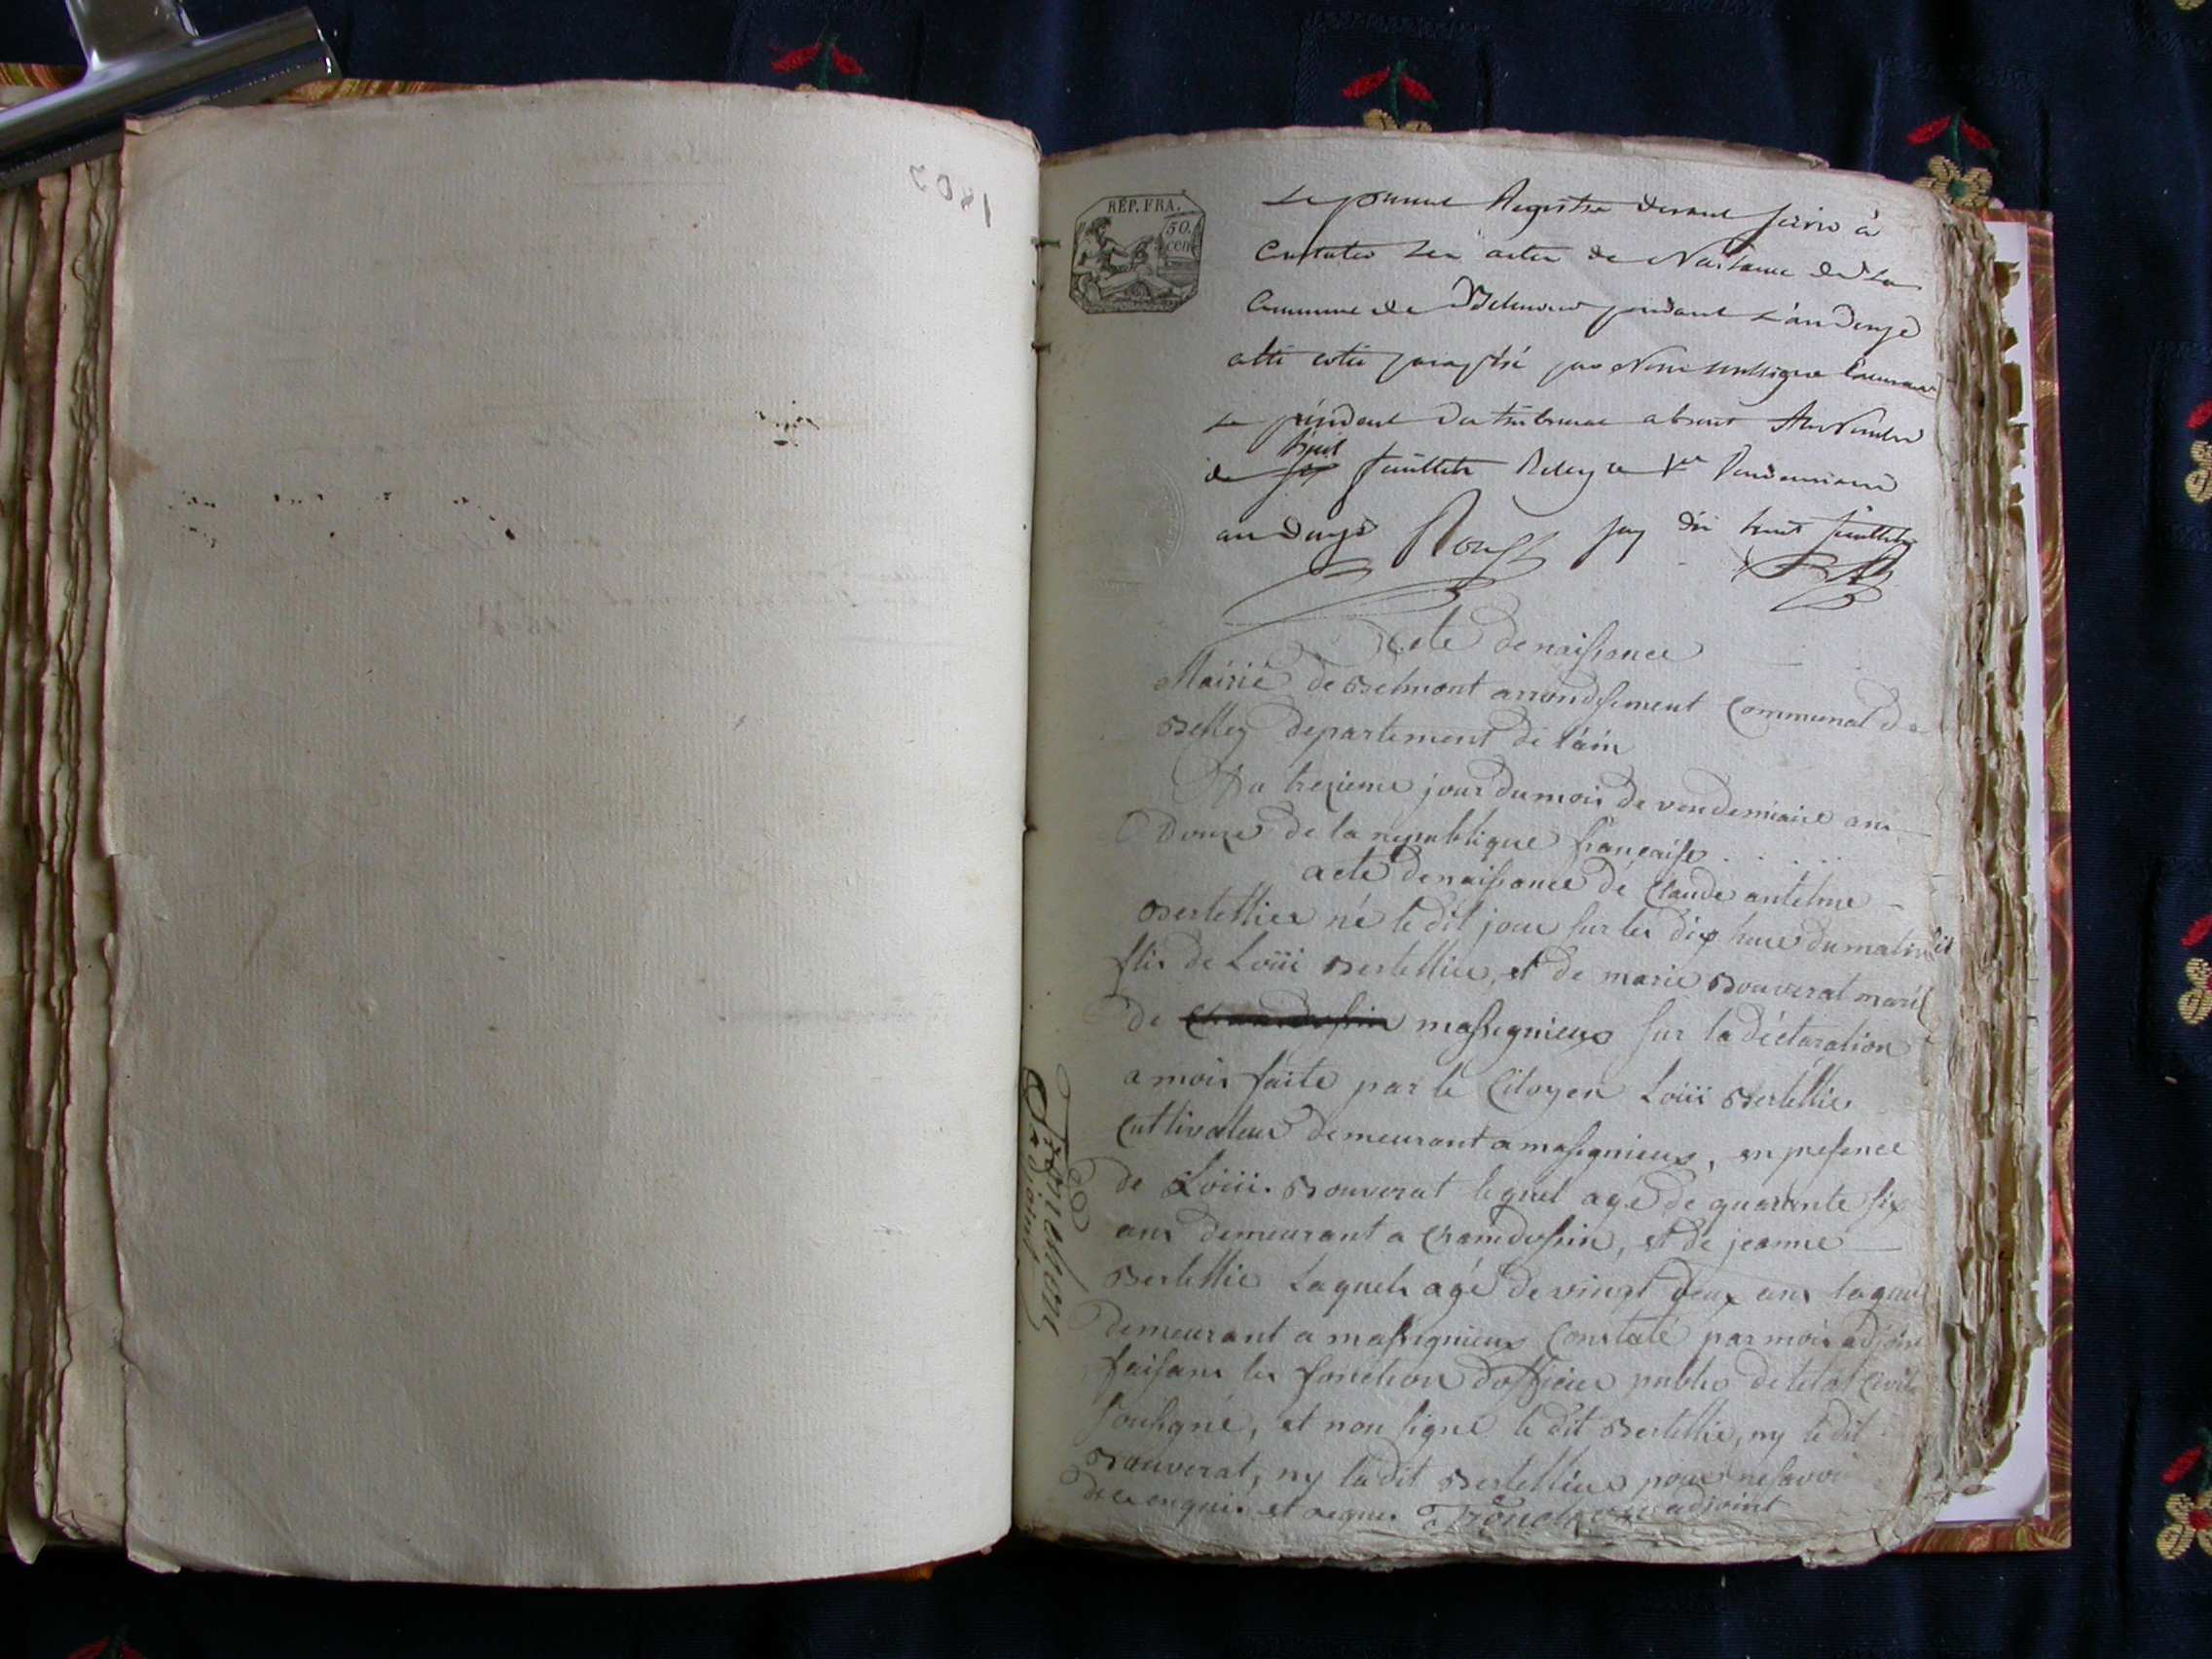 1802
RÉP. FRA.
50.
cent
Le present Registre devant servir à
Constater les actes de Naissance de la
Commune de Belmont pendant L'an douze
a été cotté paraphé par Nous soussigné
Le président du tribunal absent Au Nombre
de huit feuillets Belley ce Vendemiaire
an douze dis huit feuillets
Acte de naissance
Mairie de Belmont arrondissement Communal de
Belley departement de l'ain
Du trezieme jour du mois de vendemiaire an
Douze de la republique française . . . . .
acte de naissance de Claude antelme
Bertellier né le dit jour sur les dix heure du matin
fils de Loüi Bertellier, et de marie Bouverat mariés
De massignieux sur la déclaration
a moi faite par le Citoyen Loüi Bertellier
Cultivateur demeurant a massignieux, en presence
de Loüi Bouverat lequel agé de quarante six
ans demeurant a Chamdossin, et de jeanne
Bertellie Laquele agé de vingt deux ans laquel
Demeurant a massignieux Constaté par moi adjoint
faisans les fonction d'officier public de l'etat Civile
Sousigné, et non signé le dit Bertellie, ny le dit
Bouverat, ny la dit Bertellier pour ne savoir
de ce enquis et requis Tronchon adjoint
Tronchon
adjoint